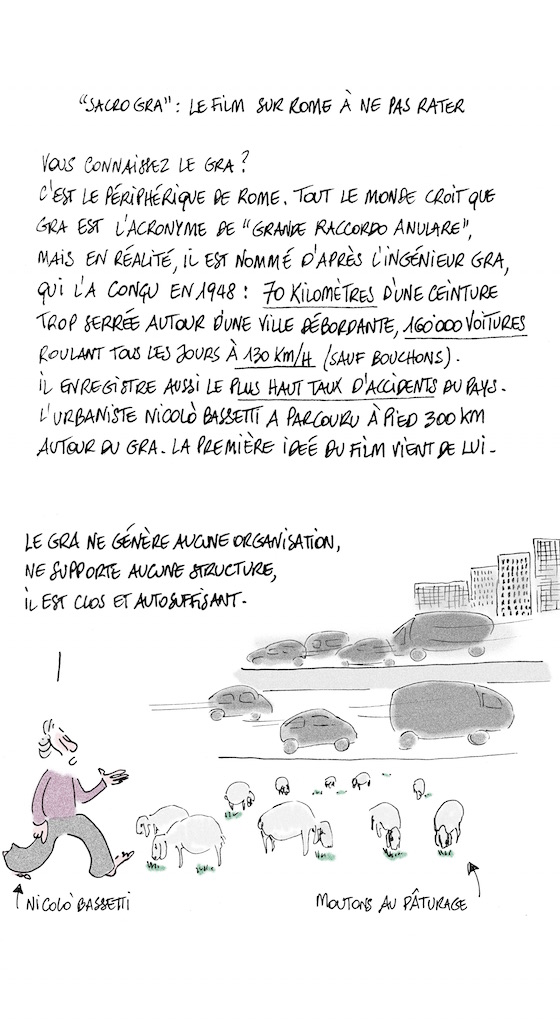 "SACRO GRA" : LE FILM SUR ROME À NE PAS RATER
VOUS CONNAISSEZ LE GRA ?
C'EST LE PÉRIPHÉRIQUE DE ROME. TOUT LE MONDE CROIT QUE
GRA EST L'ACRONYME DE "GRANDE RACCORDO ANULARE",
MAIS EN RÉALITÉ, IL EST NOMMÉ D'APRÈS L'INGÉNIEUR GRA,
QUI L'A CONÇU EN 1948 : 70 KILOMÈTRES D'UNE CEINTURE
TROP SERRÉE AUTOUR D'UNE VILLE DÉBORDANTE, 160'000 VOITURES
ROULANT TOUS LES JOURS À 130 KM/H (SAUF BOUCHONS).
IL ENREGISTRE AUSSI LE PLUS HAUT TAUX D'ACCIDENTS DU PAYS.
L'URBANISTE NICOLÒ BASSETTI A PARCOURU À PIED 300 KM
AUTOUR DU GRA. LA PREMIÈRE IDEÉ DU FILM VIENT DE LUI.
LE GRA NE GÉNÈRE AUCUNE ORGANISATION,
NE SUPPORTE AUCUNE STRUCTURE,
IL EST CLOS ET AUTOSUFFISANT.
NICOLÒ BASSETTI
MOUTONS AU PÂTURAGE